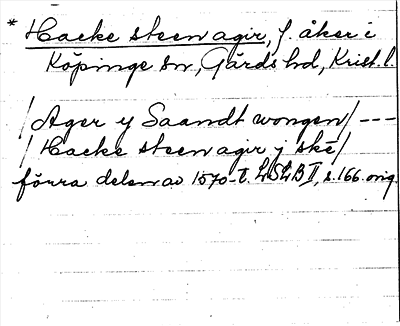 * Hacke steen agir, f. åker i
Köpinge sn, Gärds hd, Krist. l.
/ Ager y Saandt wongen / ---
/ Hacke steen agir j ske /
förra delen av 1570-t. LSLB II, s. 166. orig.